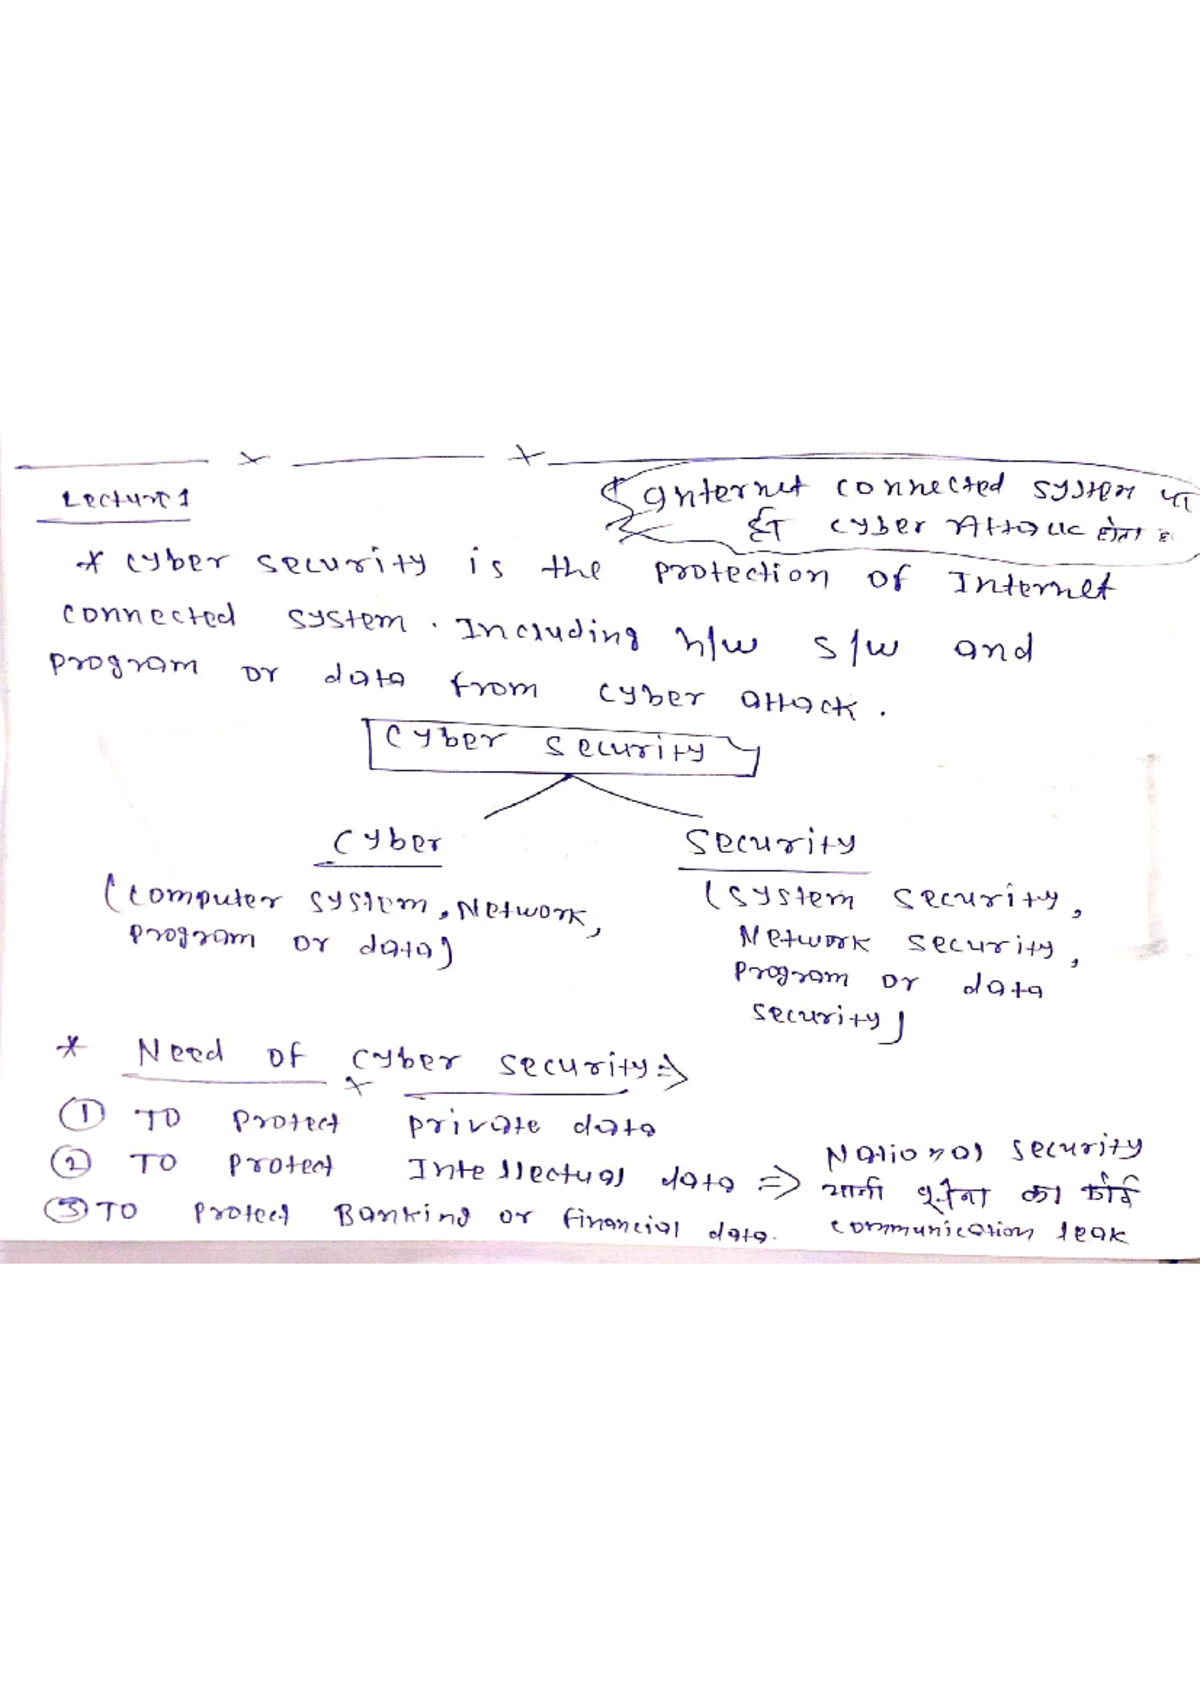 Lecture 1
Internet connected system पर
ही cyber Attack होता है
* Cyber security is the protection of Internet
connected system. Including h/w s/w and
program or data from cyber attack.
Cyber security
Cyber
Security
(computer system, Network,
program or data)
(system security,
Network security,
program or data
security)
* Need of cyber security ⇒
① TO protect private data
② TO protect Intellectual data ⇒ National security
यानी का कोई
③ TO protect Banking or financial data.
communication leak